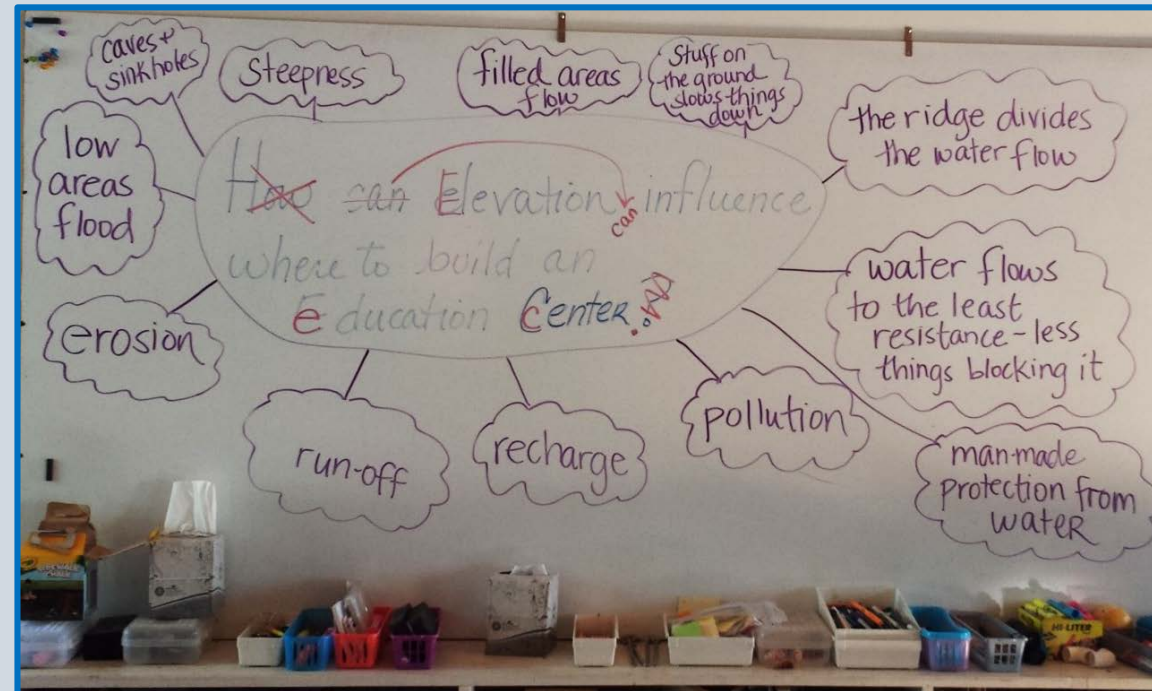 caves +
sinkholes
Steepness
filled areas
flow
Stuff on
the ground
slows things
down
the ridge divides
the water flow
low
areas
flood
How can Elevation can influence
where to build an
Education Center.
water flows
to the least
resistance - less
things blocking it
erosion
run-off
recharge
pollution
man-made
protection from
water
HI-LITER